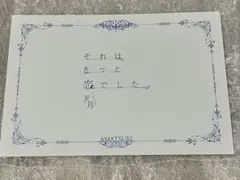 それは、
きっと
恋でした。
天月
AMATSUKI